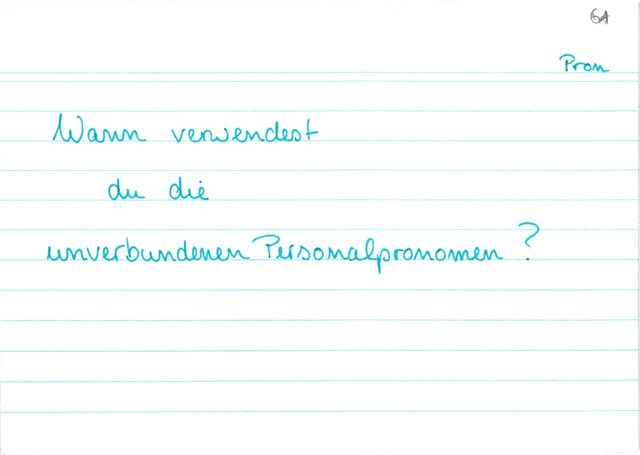 61
Pron
Wann verwendest
du die
unverbundenen Personalpronomen ?